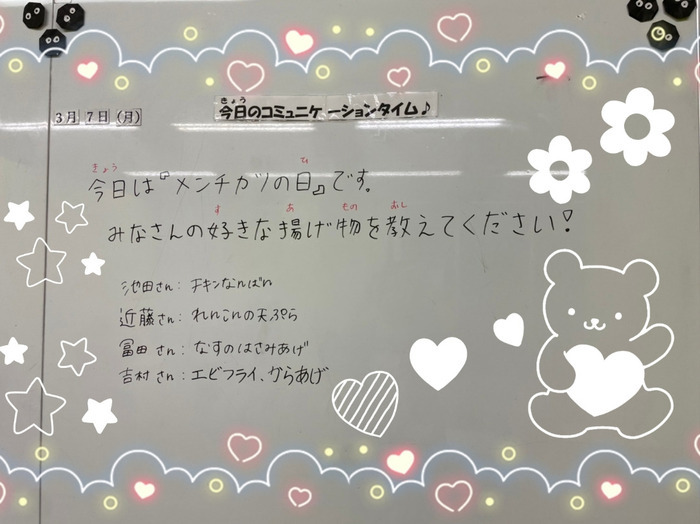 3月7日(月)
きょう
今日のコミュニケーションタイム♪
きょう ひ
今日は『メンチカツの日』です。
す あ もの おし
みなさんの好きな揚げ物を教えてください!
池田さん:チキンなんばん
近藤さん:れんこんの天ぷら
冨田さん:なすのはさみあげ
吉村さん:エビフライ、からあげ